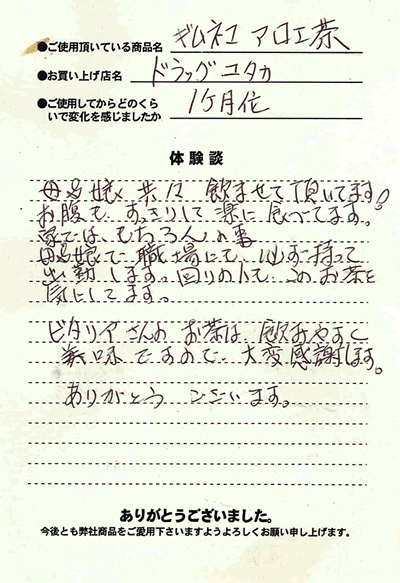 ●ご使用頂いている商品名 ギムネマ アロエ茶
●お買い上げ店名 ドラッグユタカ
●ご使用してからどのくら
いで変化を感じましたか 1ヶ月位
体験談
母娘 共々 飲ませて頂いてます。
お腹も すっきりして 楽に 食べてます。
家では、もちろんの事
母娘で 職場にも、必ず持って
出勤します。回りの人も、このお茶を
気にしてます。
ビタリアさんの お茶は、飲みやすく
美味ですので 大変感謝します。
ありがとう ございます。
ありがとうございました。
今後とも弊社商品をご愛用下さいますようよろしくお願い申し上げます。